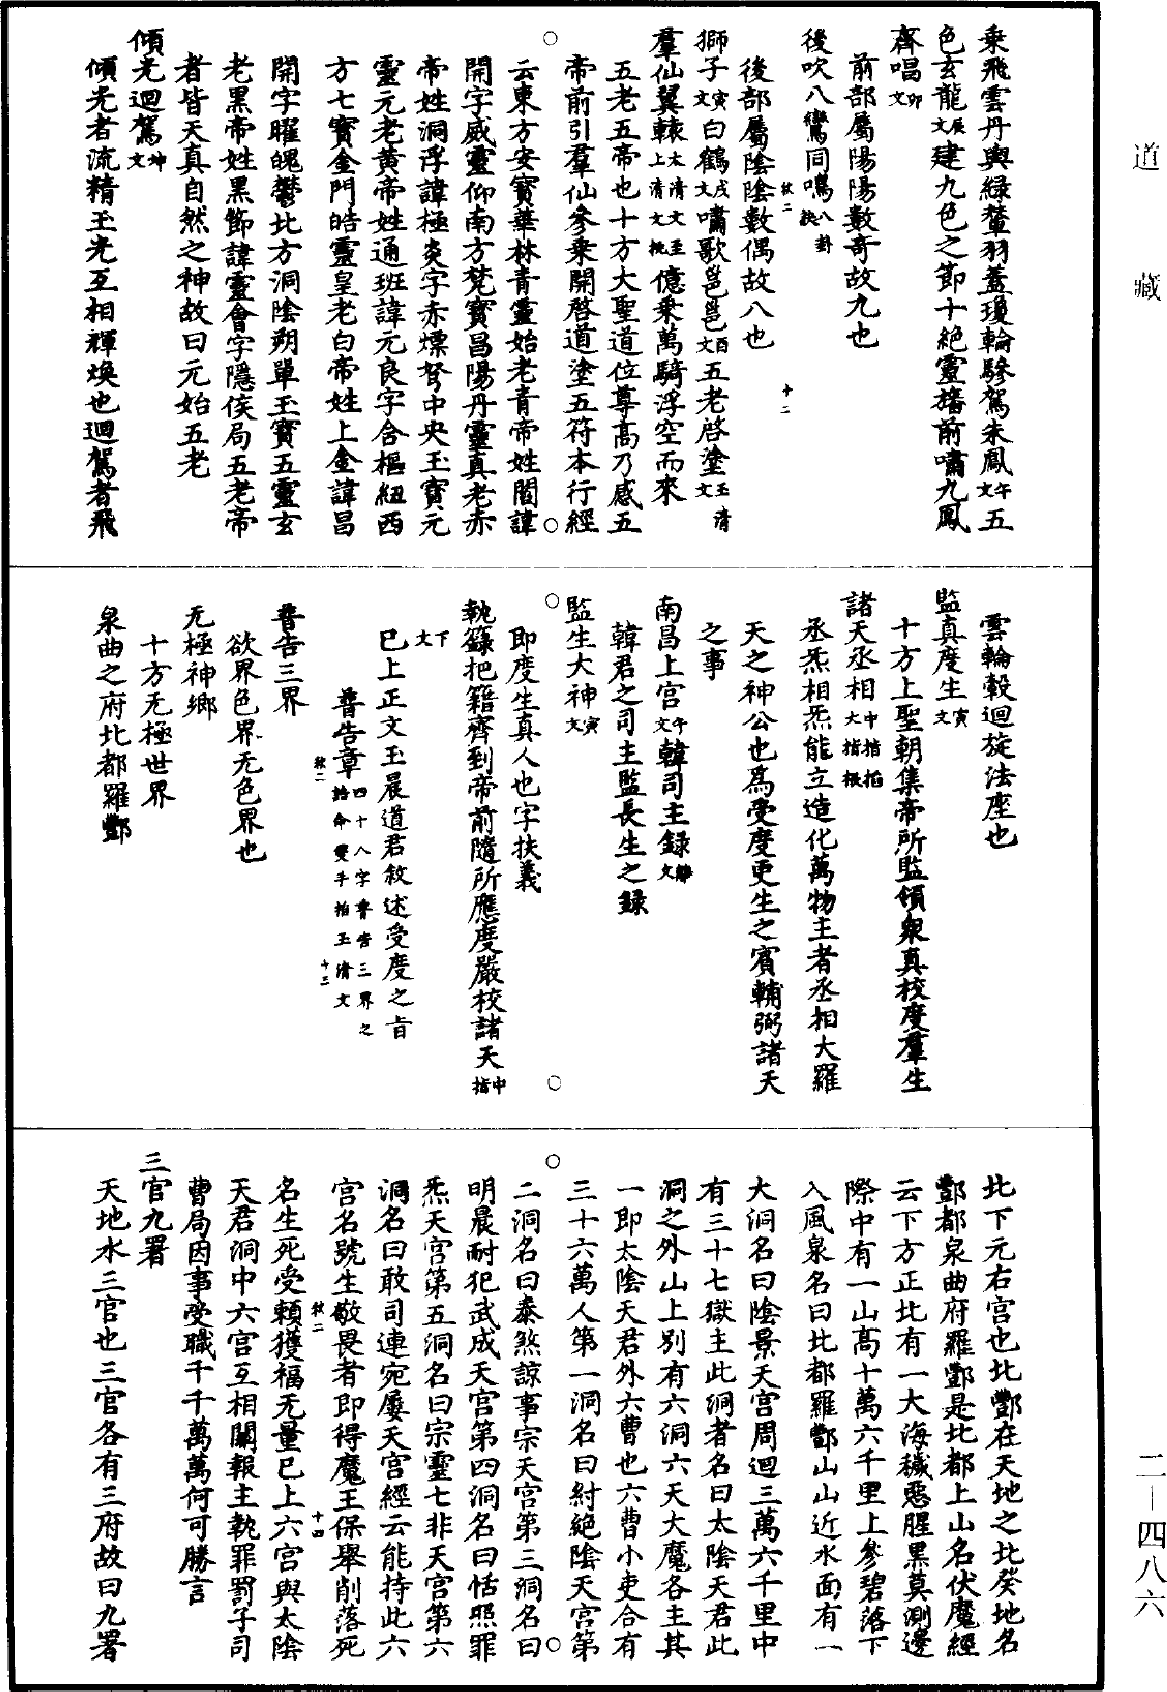 道藏
乘飛雲丹輿綠輦羽蓋瓊輪驂駕朱鳳午文五
色玄龍辰文建九色之節十絕靈旛前嘯九鳳
齊唱卯文
前部屬陽陽數奇故九也
後吹八鸞同鳴八卦訣
後部屬陰陰數偶故八也
獅子寅文白鶴戌文嘯歌邕邕酉文五老啓塗玉清文
羣仙翼轅太清文至上清文㧓億乘萬騎浮空而來
五老五帝也十方大聖道位尊高乃感五
帝前引羣仙參乘開啓道塗五符本行經
云東方安寶華林青靈始老青帝姓閻諱
開字威靈仰南方梵寶昌陽丹靈真老赤
帝姓洞浮諱極炎字赤熛弩中央玉寶元
靈元老黃帝姓通班諱元良字含樞紐西
方七寶金門皓靈皇老白帝姓上金諱昌
開字曜魄鬱北方洞陰朔單玉寶五靈玄
老黑帝姓黑節諱靈會字隱侯局五老帝
者皆天真自然之神故曰元始五老
傾光迴駕坤文
傾光者流精玉光互相輝煥也迴駕者飛
雲輪轂迴旋法座也
監真度生寅文
十方上聖朝集帝所監領衆真校度羣生
諸天丞相中指掐大指根
丞炁相炁能立造化萬物主者丞相大羅
天之神公也爲受度更生之賓輔弼諸天
之事
南昌上宮午文韓司主録離文
韓君之司主監長生之録
監生大神寅文
即度生真人也字扶義
執籙把籍齊到帝前隨所應度嚴校諸天中指
下文
已上正文玉晨道君敘述受度之旨
普告章四十八字普告三界之誥命雙手掐玉清文
普告三界
欲界色界无色界也
无極神鄉
十方无極世界
泉曲之府北都羅酆
北下元右宮也北酆在天地之北癸地名
酆都泉曲府羅酆是北都上山名伏魔經
云下方正北有一大海穢惡腥黑莫測邊
際中有一山高十萬六千里上參碧落下
入風泉名曰北都羅酆山山近水面有一
大洞名曰陰景天宮周迴三萬六千里中
有三十七獄主此洞者名曰太陰天君此
洞之外山上別有六洞六天大魔各主其
一即太陰天君外六曹也六曹小吏合有
三十六萬人第一洞名曰紂絕陰天宮第
二洞名曰泰煞諒事宗天宮第三洞名曰
明晨耐犯武成天宮第四洞名曰恬照罪
炁天宮第五洞名曰宗靈七非天宮第六
洞名曰敢司連宛屢天宮經云能持此六
宮名號生敬畏者即得魔王保舉削落死
名生死受頼獲福无量已上六宮與太陰
天君洞中六宮互相關報主執罪罰子司
曹局因事受職千千萬萬何可勝言
三官九署
天地水三官也三官各有三府故曰九署
二—四八六